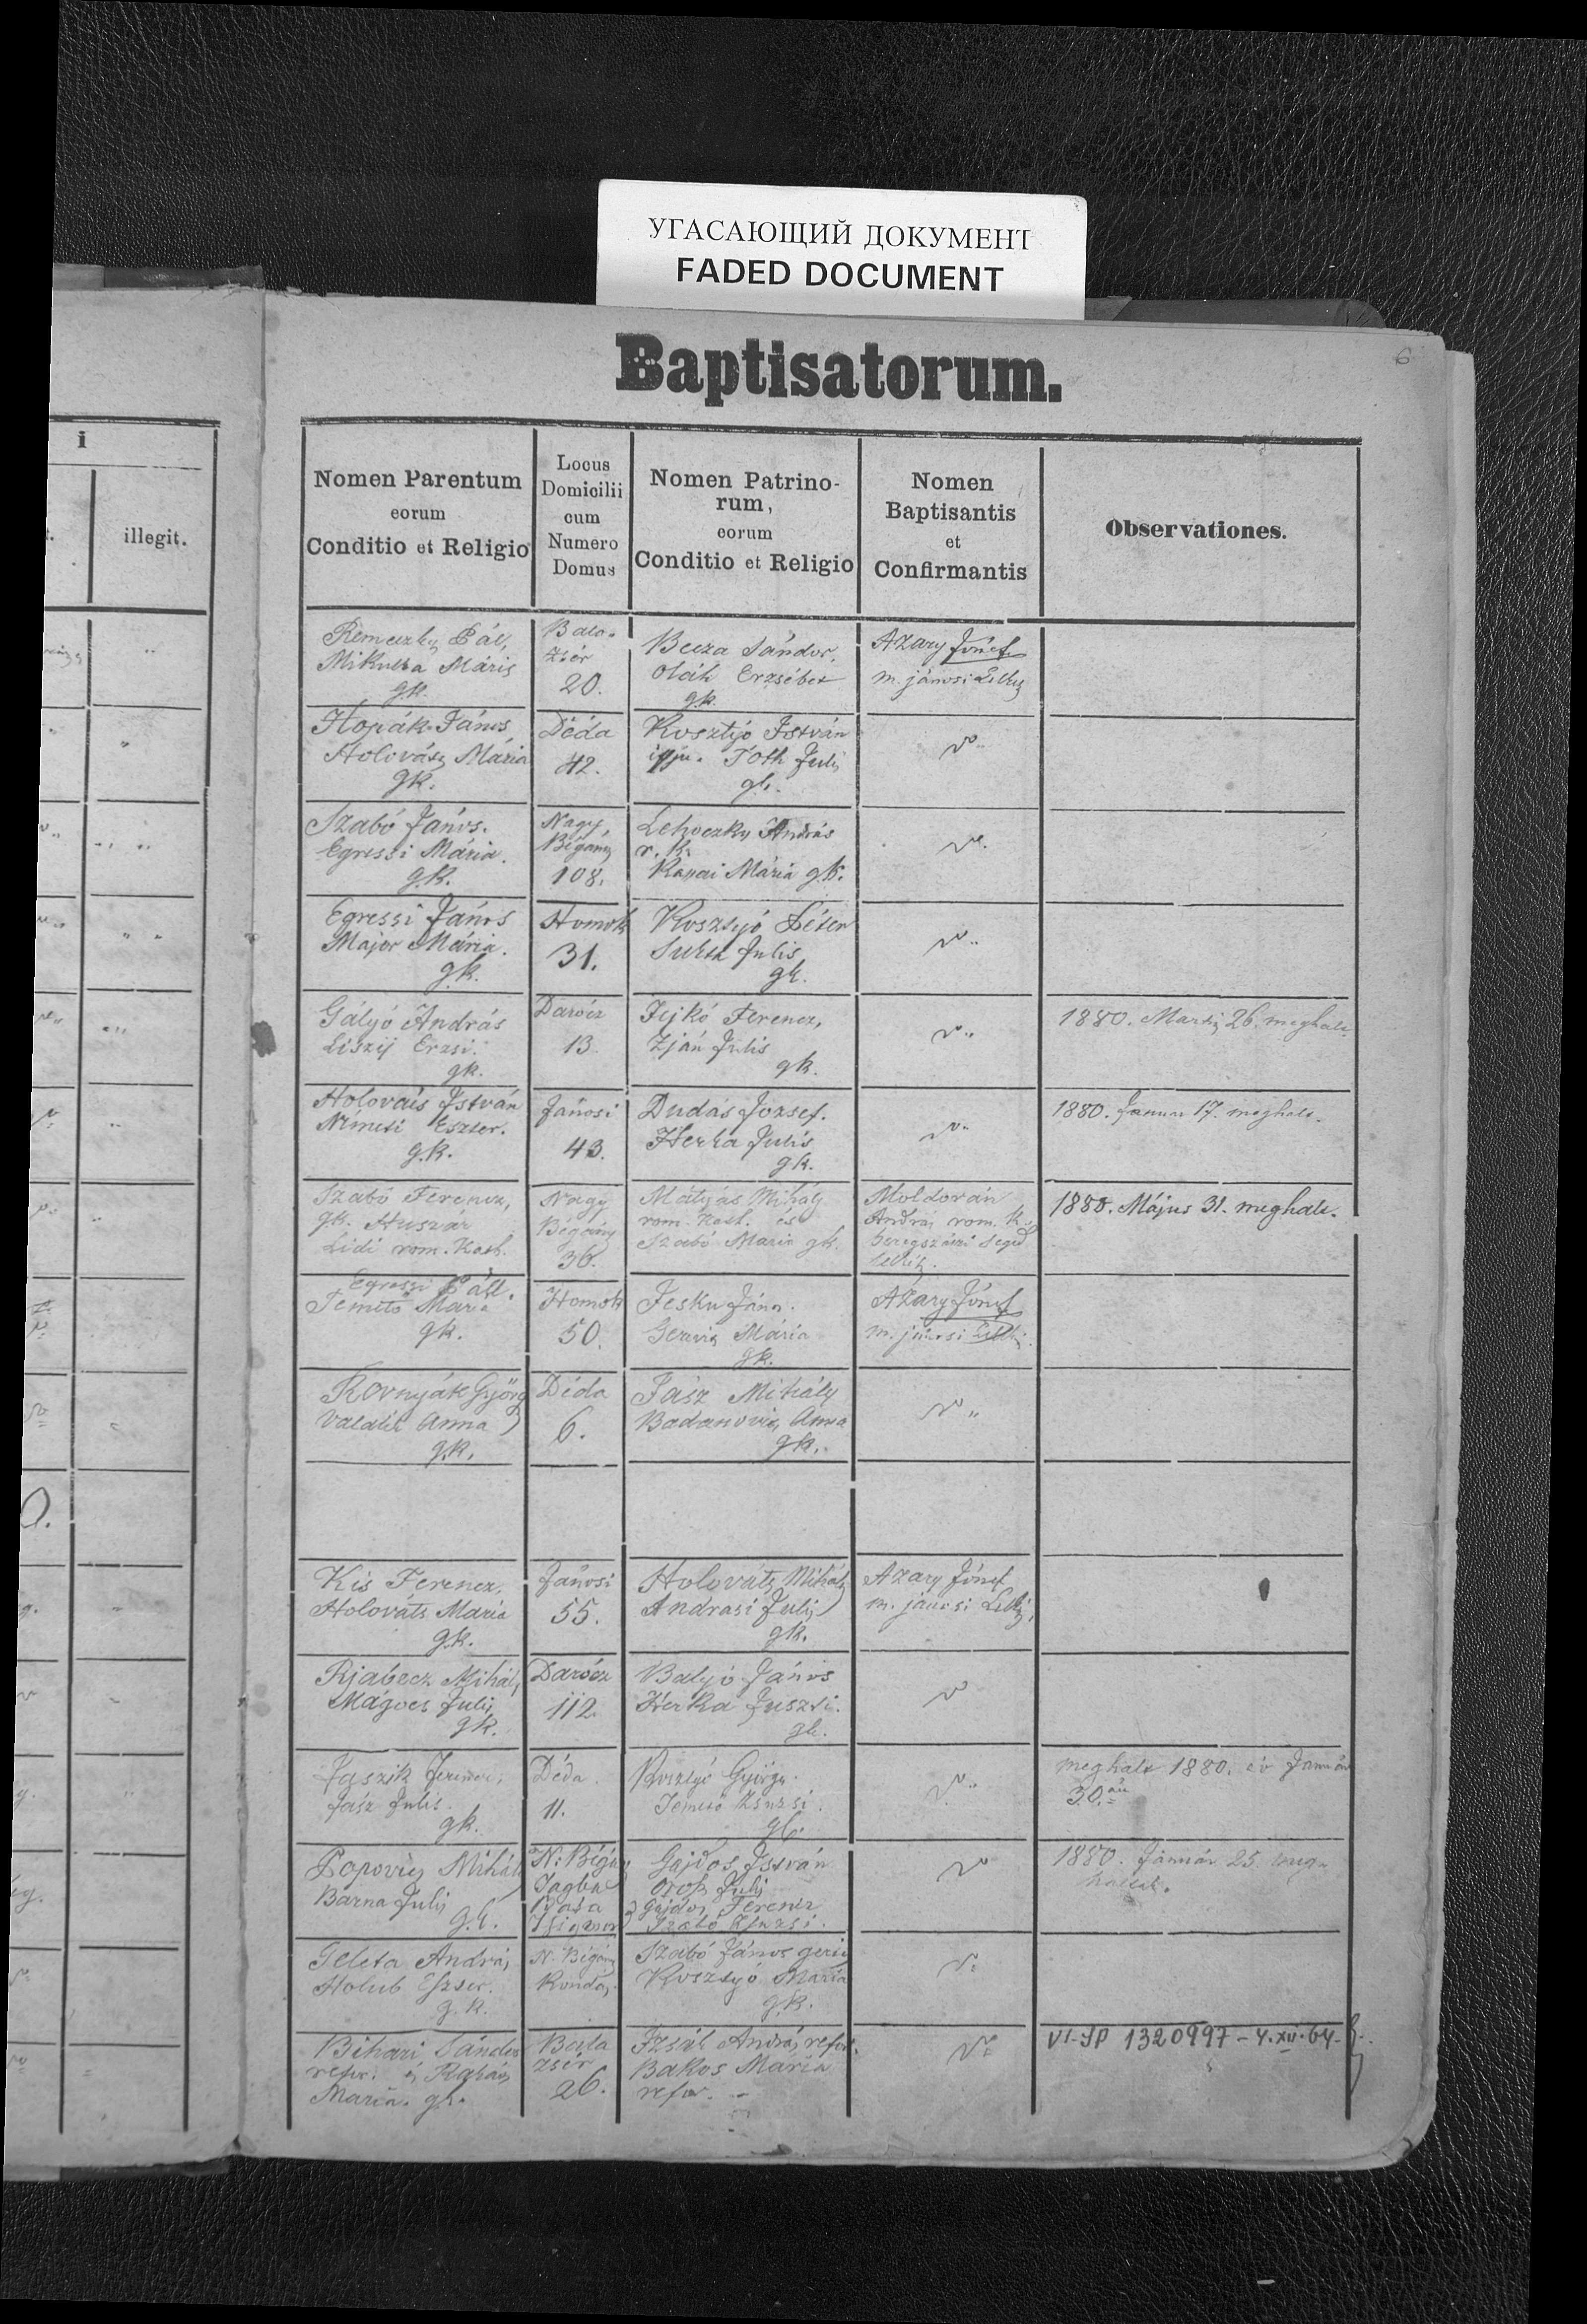 УГАСАЮЩИЙ ДОКУМЕНТ
FADED DOCUMENT
Baptisatorum.
6
i
illegit.
Nomen Parentum
eorum
Conditio et Religio
Locus
Domicilii
cum
Numero
Domus
Nomen Patrino-
rum,
eorum
Conditio et Religio
Nomen
Baptisantis
et
Confirmantis
Observationes.
Pál,
Máris
gk.
20.
Becza Sándor,
Oláh Erzsébet
gk.
Azary József
m. jánosi Lelkész
Hopák János
Holovász Mária
gk.
Déda
42.
Kosztyó István
ifju. Tóth Julis
gk.
Szabó János.
Egressi Mária.
gk.
Nagy
Bégány
108.
Lehoczky András
r. k.
Mária gk.
Egressi János
Major Mária.
gk.
Homok
31.
Kosztyó Péter
Julis
gk.
Gályó András
Erzsi.
gk.
Darócz
13.
Ferencz,
Julis
gk.
1880. Martz 26. meghalt.
Holováts István
Németi Eszter.
gk.
Jánosi
43.
Dudás József.
Herka Julis
gk.
1880. Januar 17. meghalt.
Szabó Ferencz,
gk. Huszár
Lidi rom. Kath.
Nagy
Bégány
36.
Mátyás Mihály
rom. Kath. és
Szabó Maria gk.
Moldován
András rom. K.
beregszászi segéd
lelkész.
1880. Május 31. meghalt.
Egressi Pál.
Temető Maria
gk.
Homok
50.
Fesku János.
Mária
gk.
Azary József
m. jánosi Lelkész
Kornyák György
Anna
gk.
Déda
6.
Jász Mihály
Badanovics Anna
gk.
Kis Ferencz.
Holováts Maria
gk.
Jánosi
55.
Holováts Mihály
Andrasi Julis
gk.
Azary József
m. jánosi Lelkész
Rjabecz Mihály
Mágocs Julis
gk.
Darócz
112.
Balyó János
Herka Juszti.
gk.
Jaszik Ferencz,
Jász Julis.
gk.
Déda.
11.
Kosztyó György.
Temető Zsuzsi.
gk.
meghalt 1880. év Január
30.án
Popovics Mihály
Barna Julis
g.k.
N. Bégány
Gajdos István
Orosz Julis
2 Gajdos Ferencz
Szabó Zsuzsi.
1880. Január 25. meg-
halt.
Teleta András
Holub Eszter.
g.k.
N. Bégány
Kondás.
Szabó János
Kosztyó Maria
gk.
Bihari Sándor
refor. és
Maria. gk.
Bala
zsér
26.
Izsák András refor.
Bakos Mária
refor. -
VI-JP 1320997 - 4.XII.64.